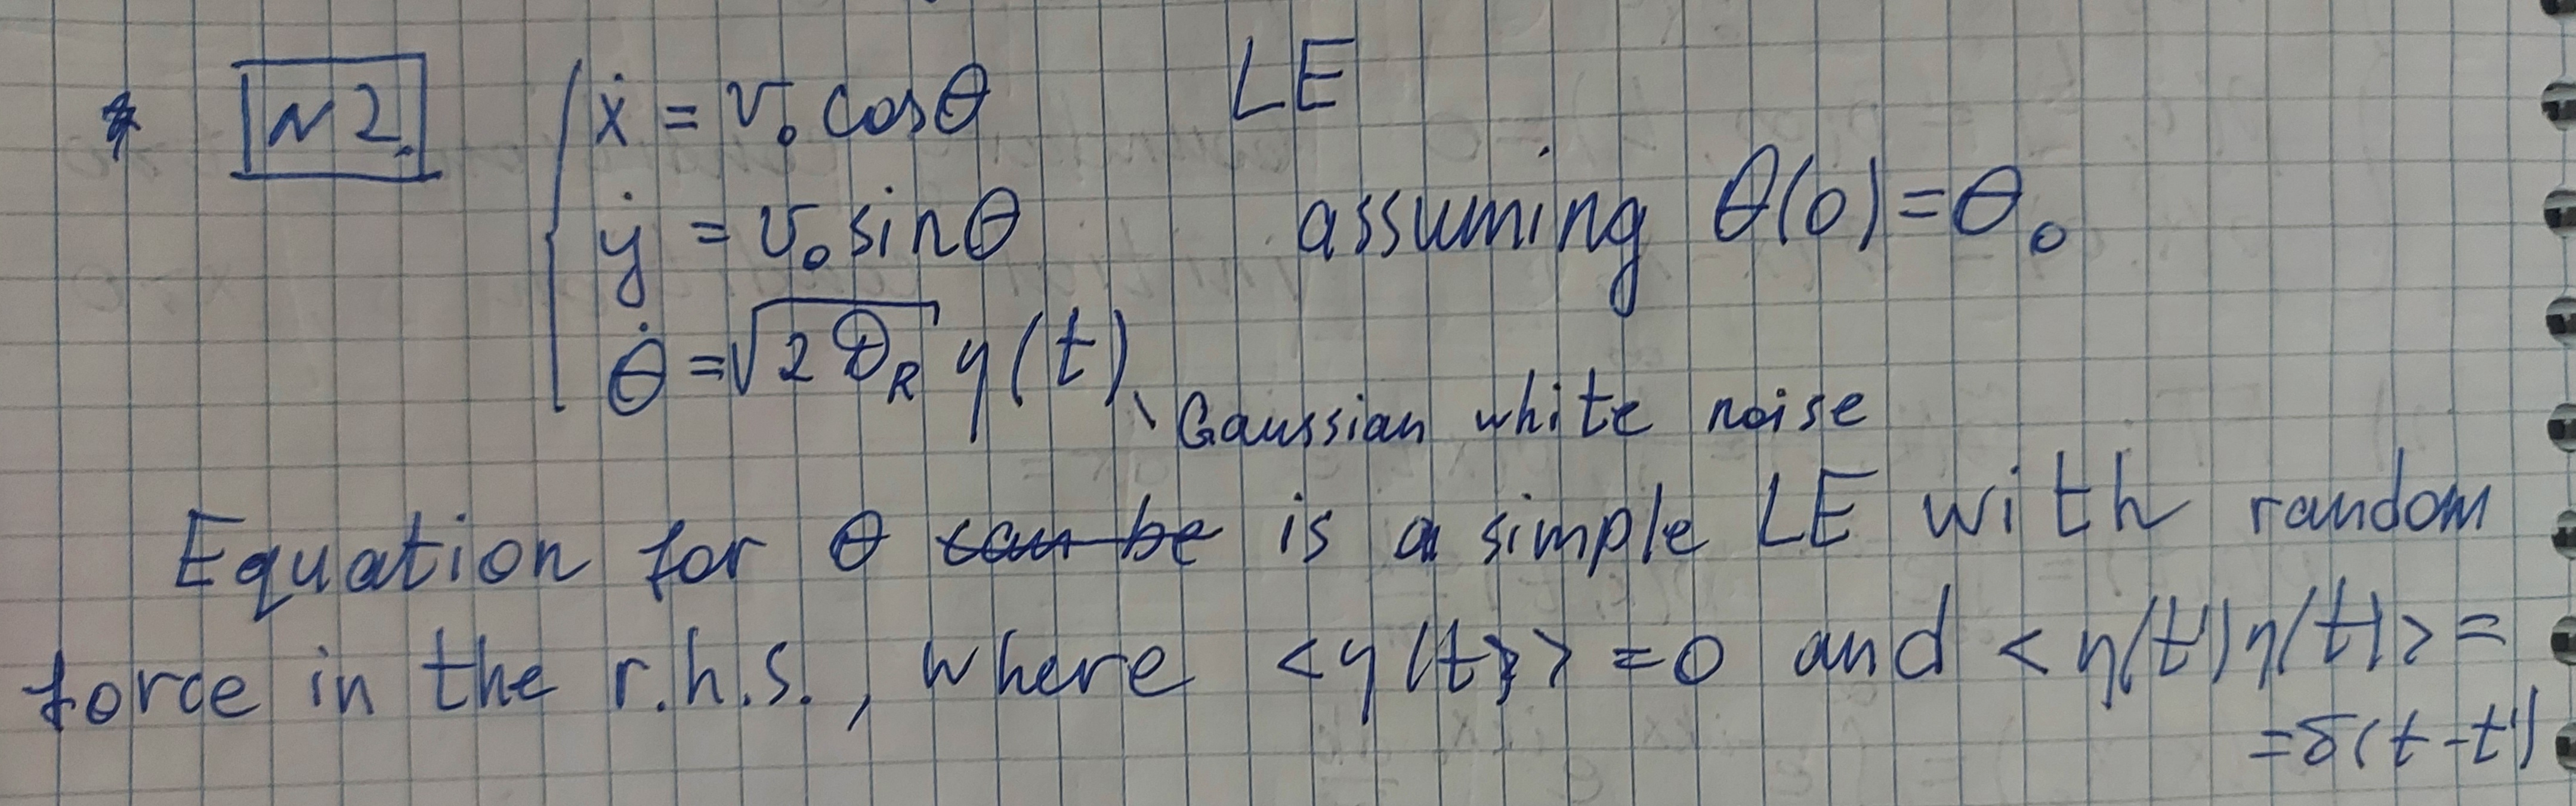 * N 2. ẋ = v₀ cosθ LE
ẏ = v₀ sinθ assuming θ(0) = θ₀
θ̇ = √2 D_R η(t)
Gaussian white noise
Equation for θ can be is a simple LE with random
force in the r.h.s., where <η(t)> = 0 and <η(t')η(t)> =
= δ(t - t')